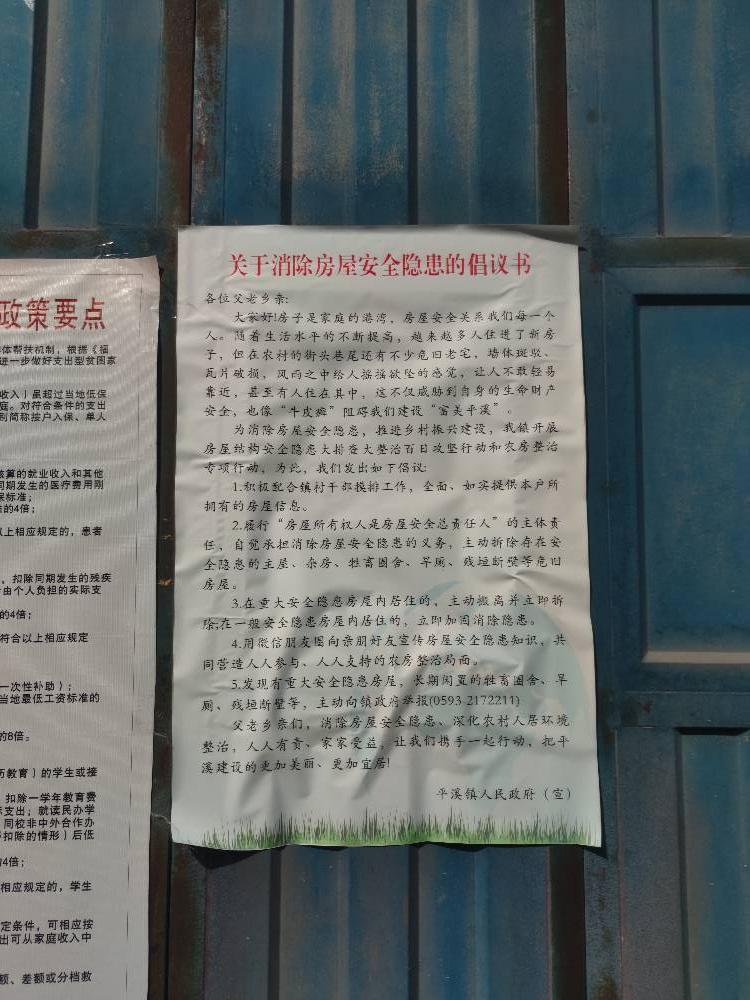 政策要点
体帮扶机制，根据《福
进一步做好支出型贫困家
收入）虽超过当地低保
庭。对符合条件的支出
别简称按户入保、单人
核算的就业收入和其他
同期发生的医疗费用刚
保标准；
的4倍；
以上相应规定的，患者
，扣除同期发生的残疾
由个人负担的实际支
的4倍；
符合以上相应规定
一次性补助）；
当地最低工资标准的
的8倍。
历教育）的学生或接
，扣除一学年教育费
际支出；就读民办学
同校非中外合作办
扣除的情形）后低
的4倍；
相应规定的，学生
定条件，可相应按
出可从家庭收入中
额、差额或分档救
关于消除房屋安全隐患的倡议书
各位父老乡亲:
大家好!房子是家庭的港湾，房屋安全关系我们每一个
人。随着生活水平的不断提高，越来越多人住进了新房
子，但在农村的街头巷尾还有不少危旧老宅，墙体斑驳、
瓦片破损，风雨之中给人摇摇欲坠的感觉，让人不敢轻易
靠近，甚至有人住在其中，这不仅威胁到自身的生命财产
安全，也像“牛皮癣”阻碍我们建设“富美平溪”。
为消除房屋安全隐患，推进乡村振兴建设，我镇开展
房屋结构安全隐患大排查大整治百日攻坚行动和农房整治
专项行动，为此，我们发出如下倡议:
1.积极配合镇村干部摸排工作，全面、如实提供本户所
拥有的房屋信息。
2.履行“房屋所有权人是房屋安全总责任人”的主体责
任，自觉承担消除房屋安全隐患的义务，主动拆除存在安
全隐患的主屋、杂房、牲畜圈舍、旱厕、残垣断壁等危旧
房屋。
3.在重大安全隐患房屋内居住的，主动搬离并立即拆
除;在一般安全隐患房屋内居住的，立即加固消除隐患。
4.用微信朋友圈向亲朋好友宣传房屋安全隐患知识，共
同营造人人参与、人人支持的农房整治局面。
5.发现有重大安全隐患房屋，长期闲置的牲畜圈舍、旱
厕、残垣断壁等，主动向镇政府举报(0593-2172211)
父老乡亲们，消除房屋安全隐患、深化农村人居环境
整治，人人有责、家家受益，让我们携手一起行动，把平
溪建设的更加美丽、更加宜居!
平溪镇人民政府（宣）